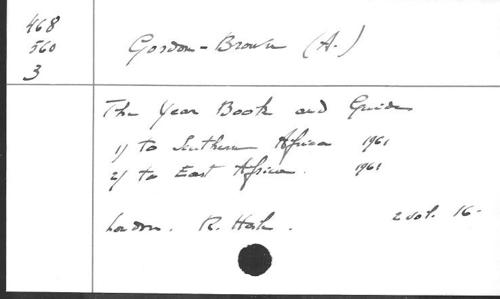 468
560
3
Gordon-Brown (A.)
The Year Book and Guide
1) to Southern Africa 1961
2) to East Africa. 1961
London. R. Hale.
2 vol. 16-